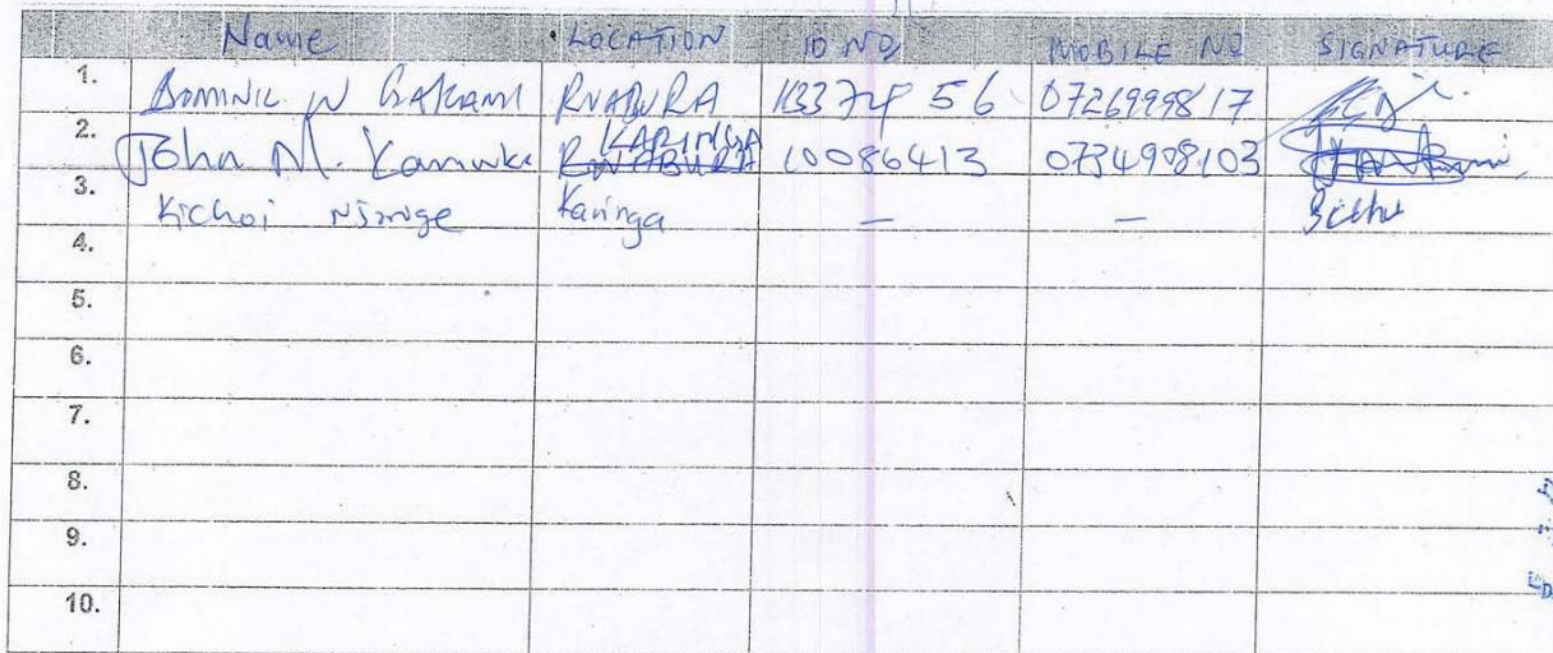 Name LOCATION ID NO MOBILE NO SIGNATURE
1. DOMINIC W GAKAMI RWABURA 07269998 17
2. John M. KARINGA RWABURA 10086413 0734908103
3. Kichoi Njoroge Karinga — —
4.
5.
6.
7.
8.
9.
10.